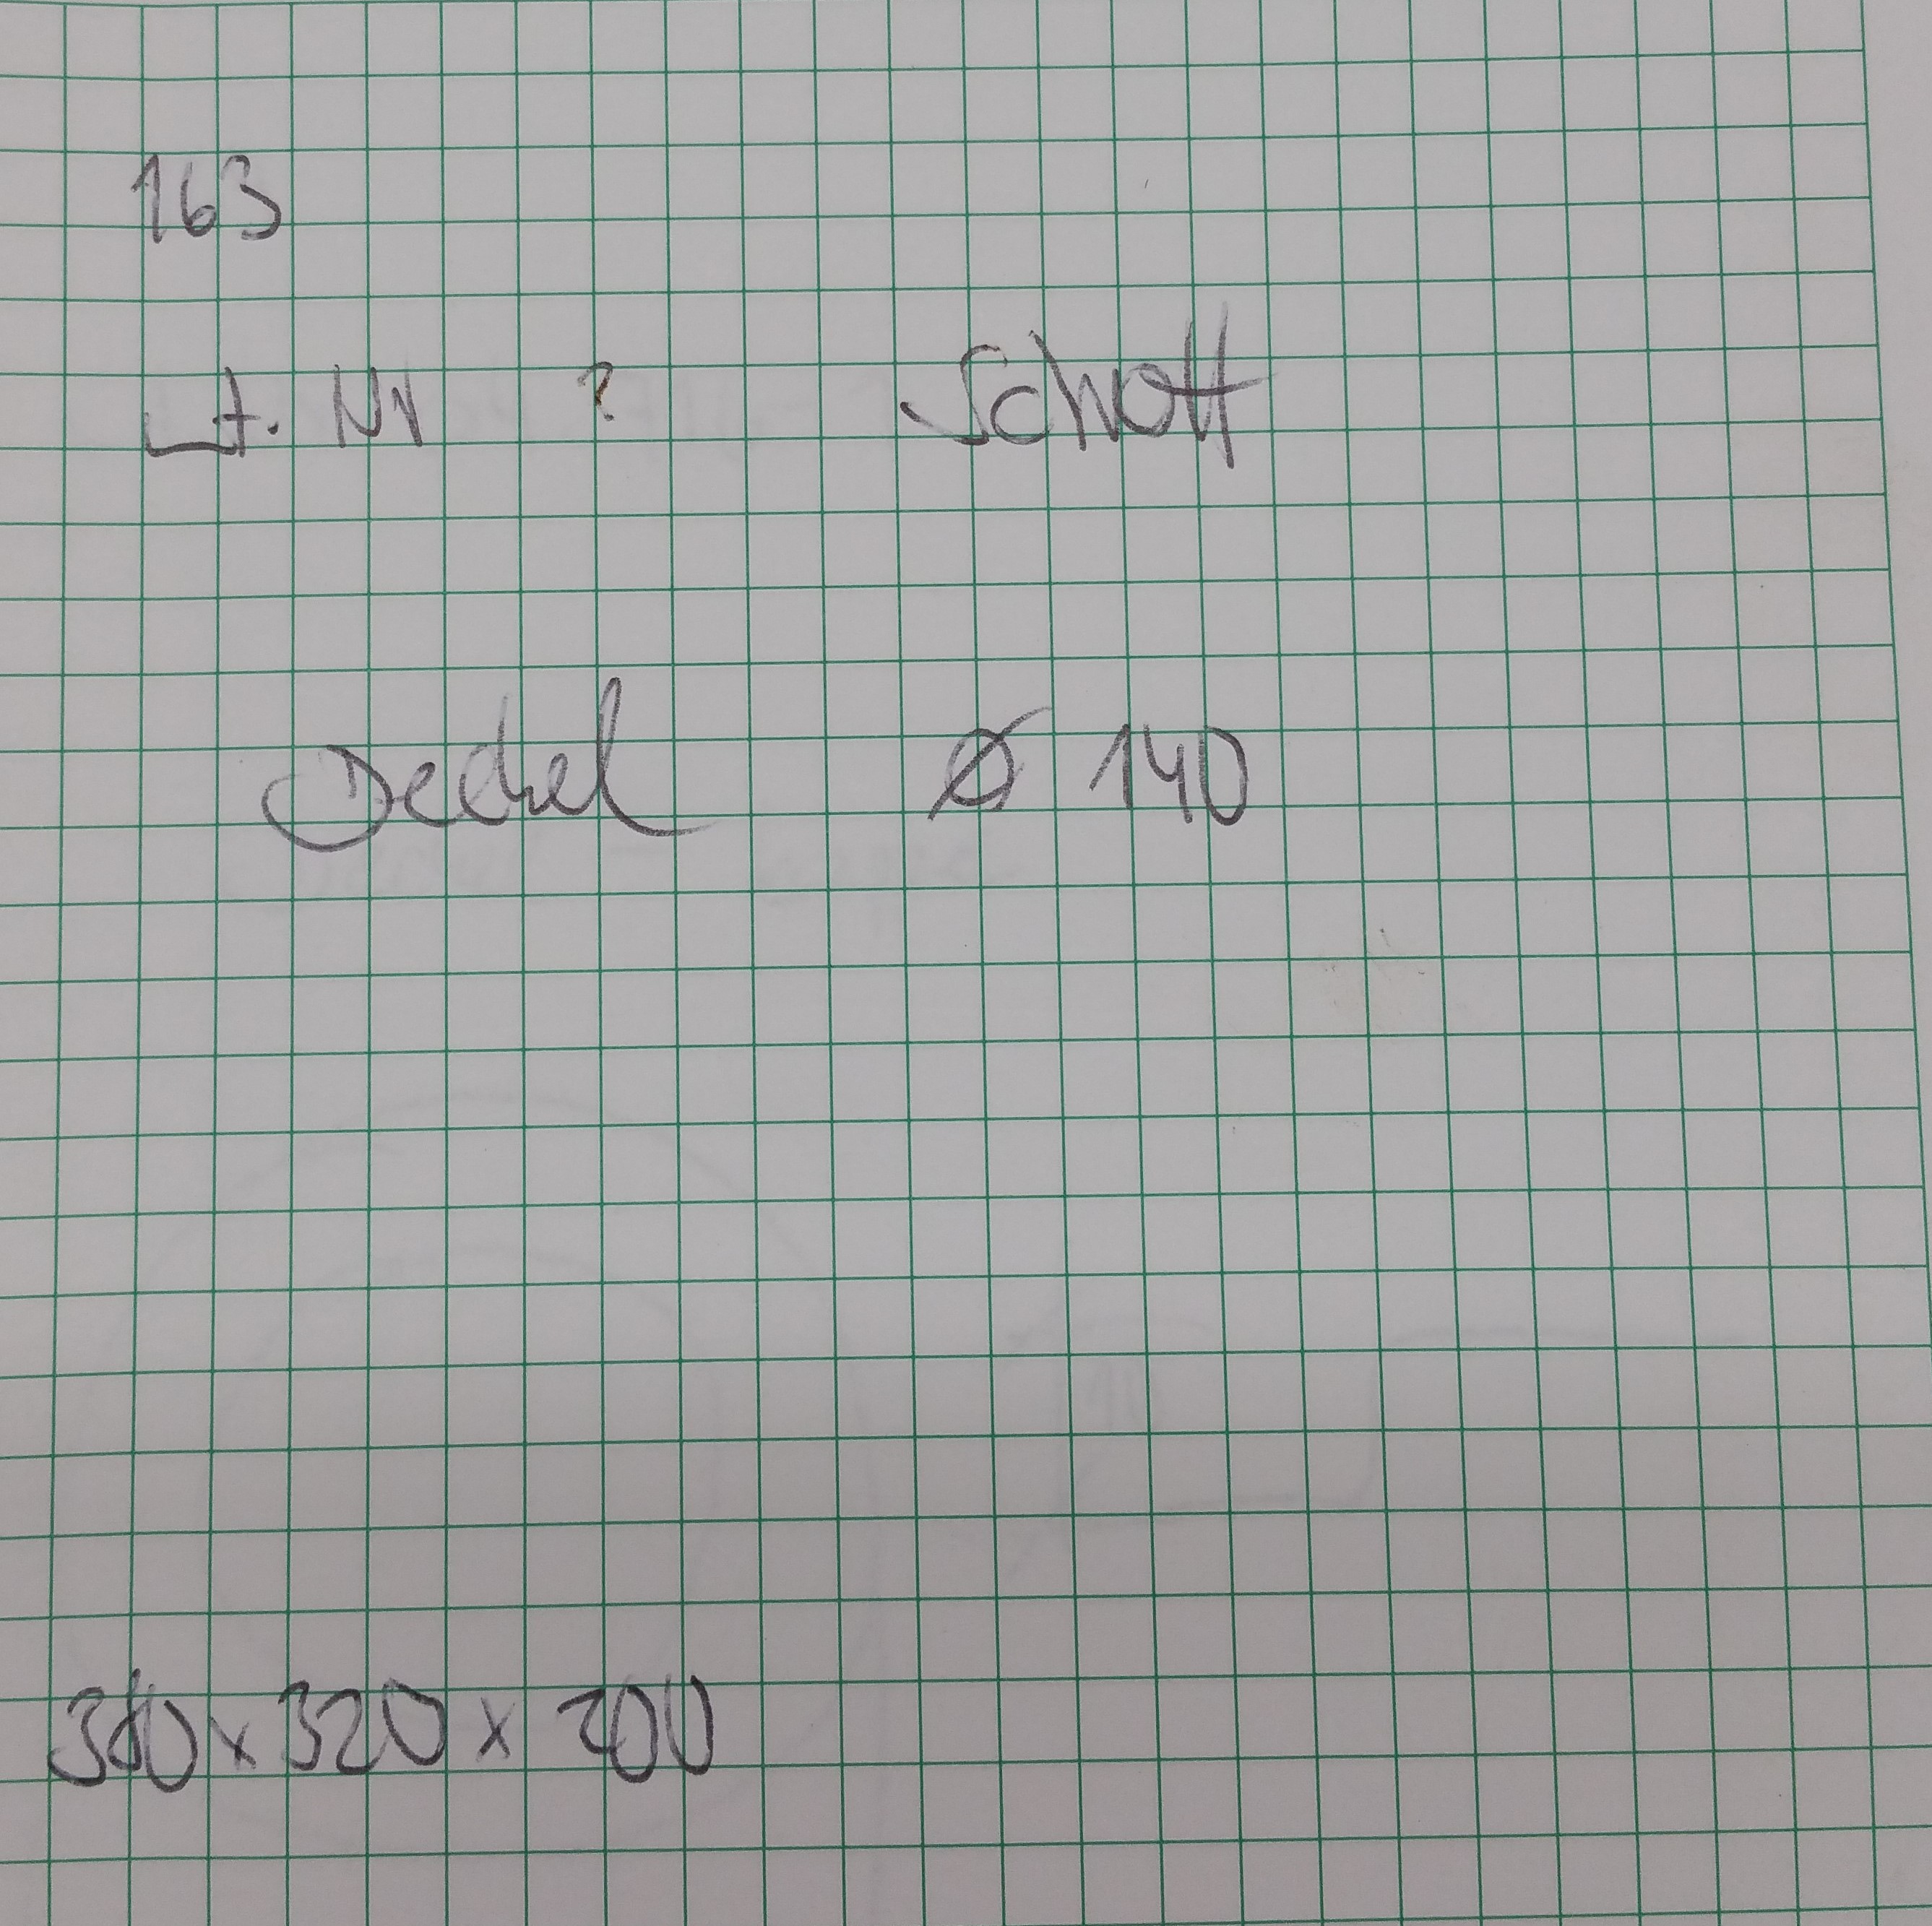 163
Lt. Nr ? Schott
Deckel Ø 140
x 320 x 200